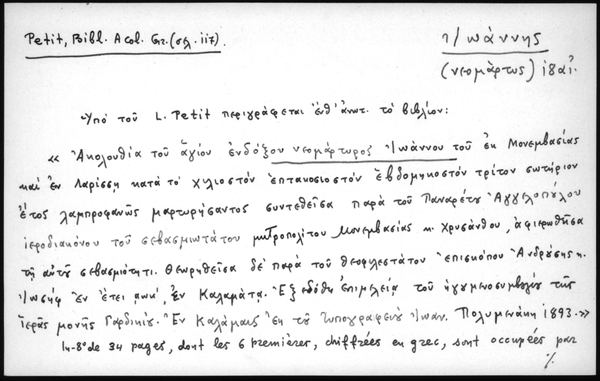 Petit, Bibl. Acol. Gr. (σελ. 117). Ἰωάννης
(νεομάρτυς) 18
Ὑπὸ τοῦ L. Petit περιγράφεται ἐνθ' ἀνωτ. τὸ βιβλίον:
« Ἀκολουθία τοῦ ἁγίου ἐνδόξου νεομάρτυρος Ἰωάννου τοῦ ἐκ Μονεμβασίας
καὶ ἐν Λαρίσσῃ κατὰ τὸ χιλιοστὸν ἑπτακοσιοστὸν ἑβδομηκοστὸν τρίτον σωτήριον
ἔτος λαμπροφανῶς μαρτυρήσαντος συντεθεῖσα παρὰ τοῦ Παναρέτου Ἀγγελοπούλου
ἱεροδιακόνου τοῦ σεβασμιωτάτου μητροπολίτου Μονεμβασίας κ. Χρυσάνθου, ἀφιερωθεῖσα
τῇ αὐτοῦ σεβασμιότητι. Θεωρηθεῖσα δὲ παρὰ τοῦ θεοφιλεστάτου ἐπισκόπου Ἀνδρούσης κ.
Ἰωσὴφ ἐν ἔτει ἐν Καλαμάτᾳ. Ἐξεδόθη ἐπιμελείᾳ τοῦ ἡγουμενοσυμβουλίου τῆς
ἱερᾶς μονῆς Γαρδικίου. Ἐν Καλάμαις ἐκ τοῦ τυπογραφείου Ἰωαν. Πολυμενάκη 1893.»
In-8° de 34 pages, dont les 6 premières, chiffrées en grec, sont occupées par
%